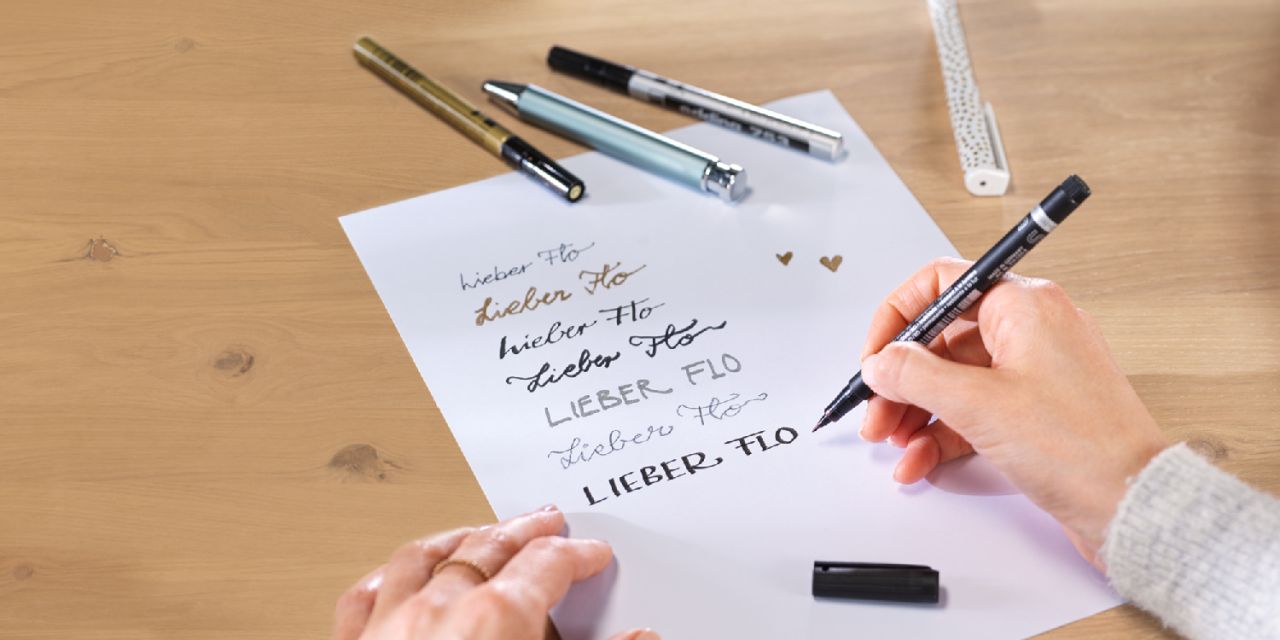 Lieber Flo
Lieber Flo
Lieber Flo
Lieber Flo
LIEBER FLO
Lieber Flo
LIEBER FLO
edding 753